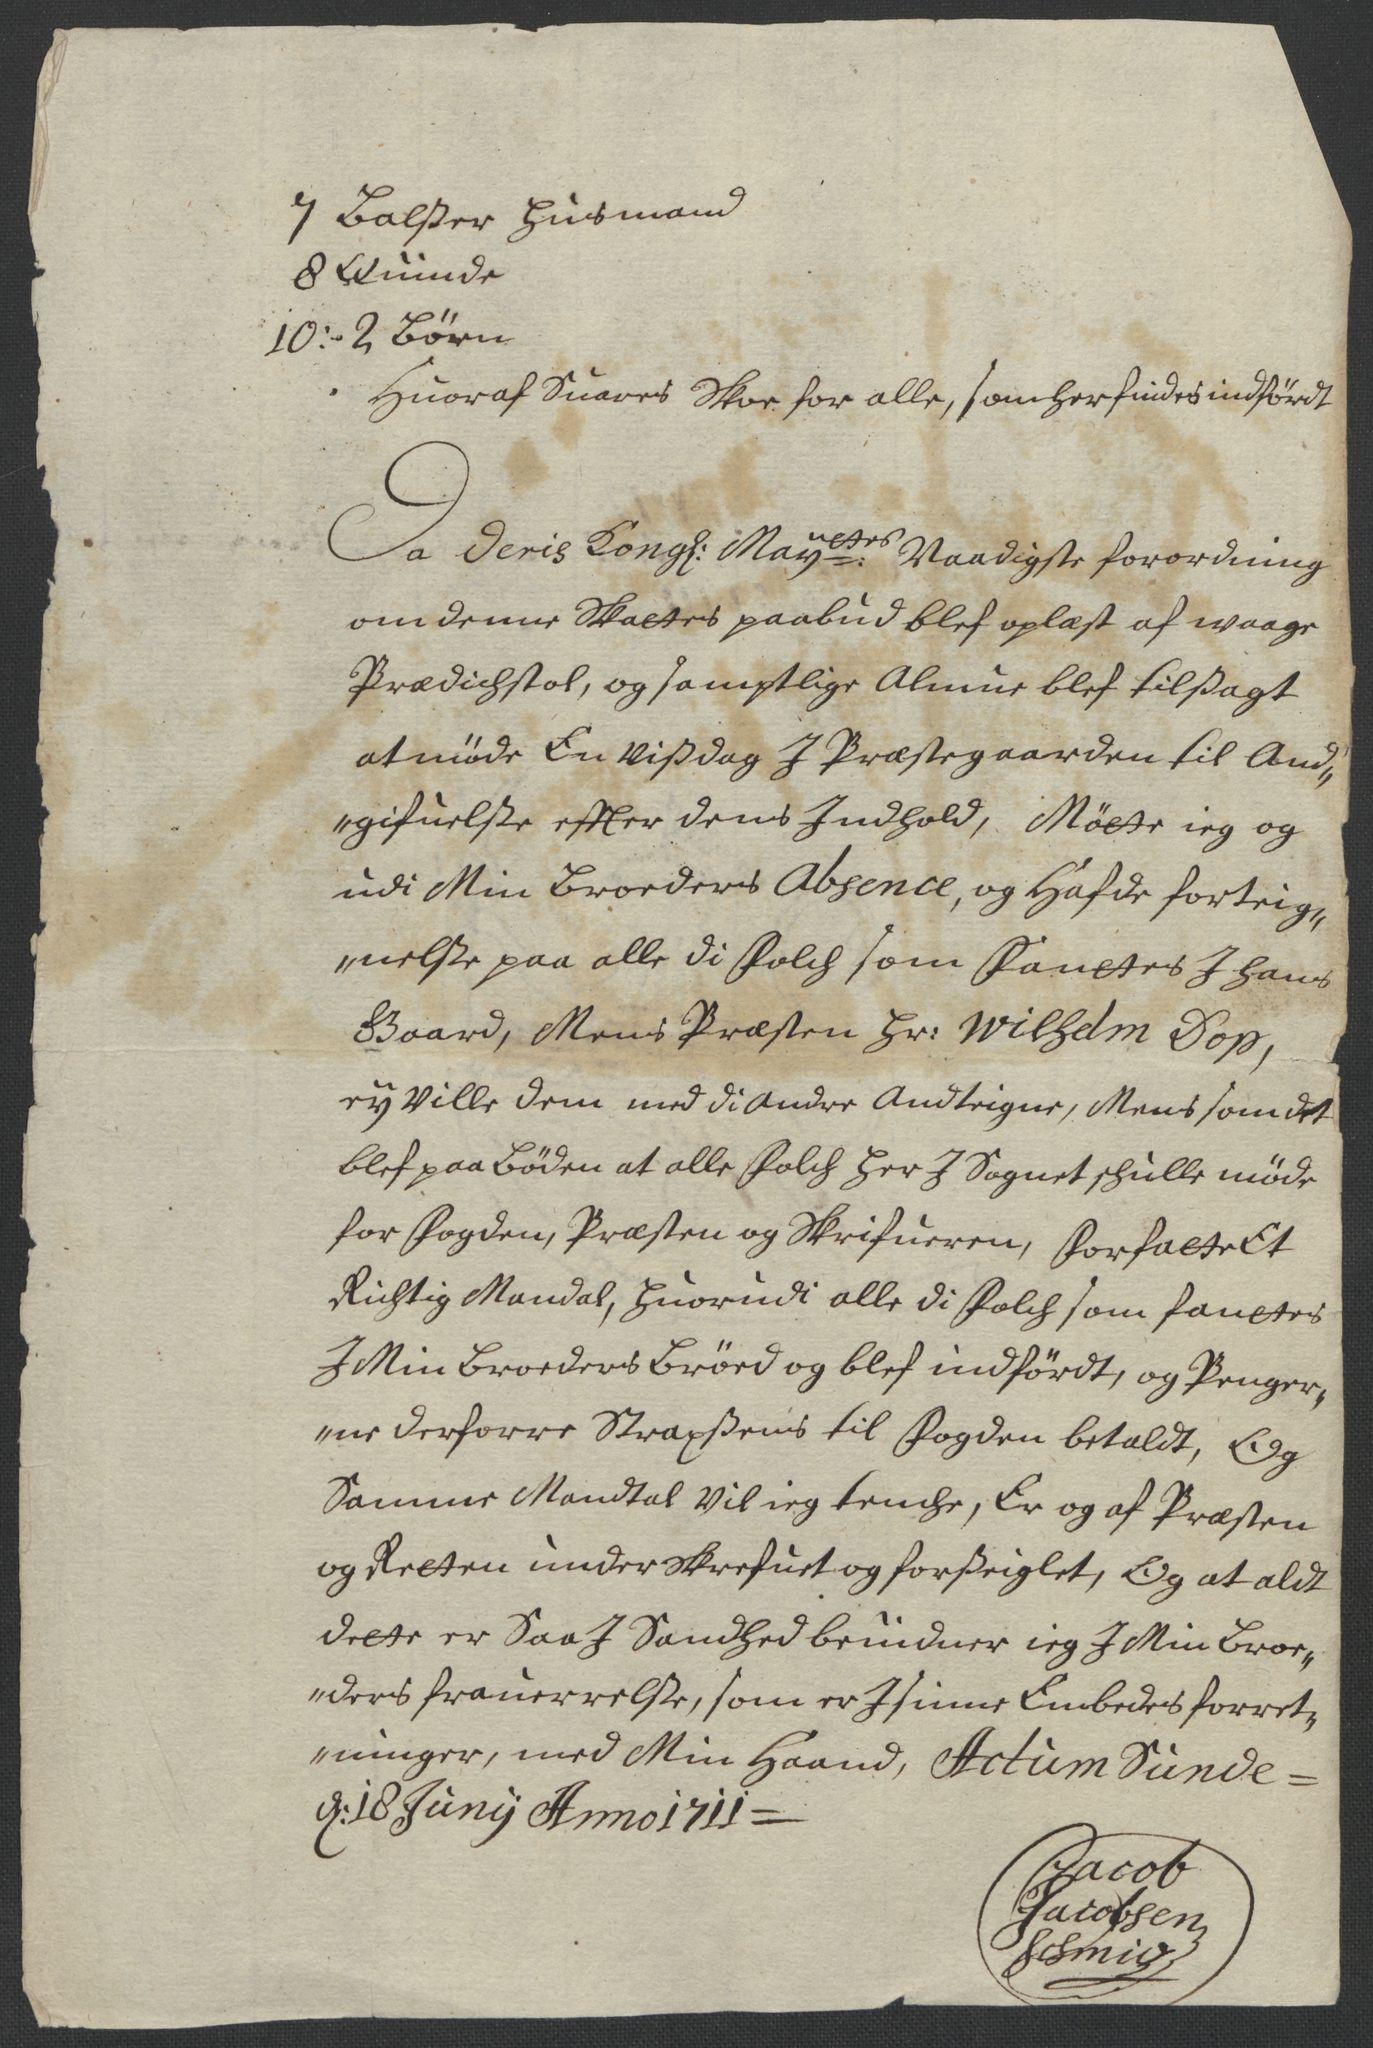 7 Balsser Huusmand
8 Quinde
10:- 2 Børn
Huoraf Suares Skoe for alle, som her findes indførdt
Da deris Kongl: Mayttes: Naadigste forordning
om denne Skattes paabud blef oplæst af waage
Prædichstol, og samptlige Almue blef tilsagt
at møde En Viss dag J Præstegaarden til And„
„gifuelsse effter dens Indhold, Møtte ieg og
udi Min Broeders Absence, og Hafde forteig„
„nelsse paa alle di Folch som Fantes J hans
Gaard, Mens Præsten Hr: Wilhelm Dop,
ey Ville dem med di andre Andteigne, Mens som det
blef paa Böden at alle Folch her J Sognet schulle møde
for Fogden, Præsten og Skrifueren, Forfatte Et
Richtig Mandal, huorudi alle di Folch som fantes
J Min Broeders Brøed og blef indførdt, og Penger„
„ne derforre Straxssens til Fogden betaldt, Og
Samme Mandtal Vil ieg tenche, Er og af Præsten
og Retten underskrefuet og forsseiglet, Og at aldt
dette er Saa J Sandhed beuidner ieg J Min Broe„
„ders frauerrelsse, som er J sinne Embedes forret„
„ninger, med Min Haand, Actum Sunde =
d: 18 Junij Anno 1711 =
Jacob
Jacobsen
Schmidt